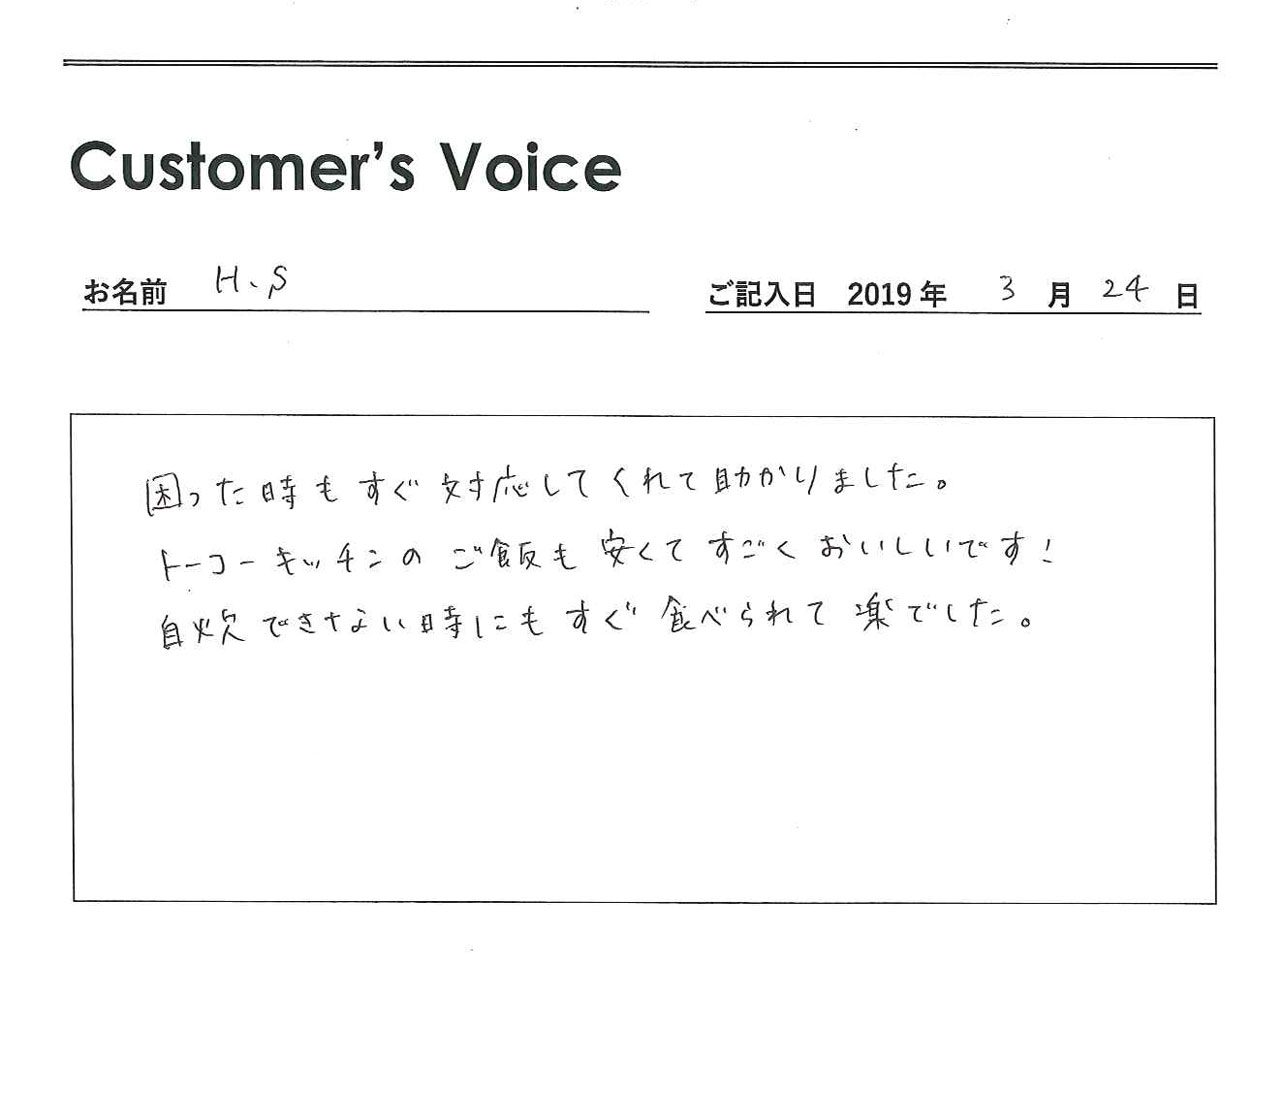 Customer's Voice
お名前 H.S ご記入日 2019年 3月 24日
困った時もすぐ対応してくれて助かりました。
トーコーキッチンのご飯も安くてすごくおいしいです!
自炊できない時にもすぐ食べられて楽でした。